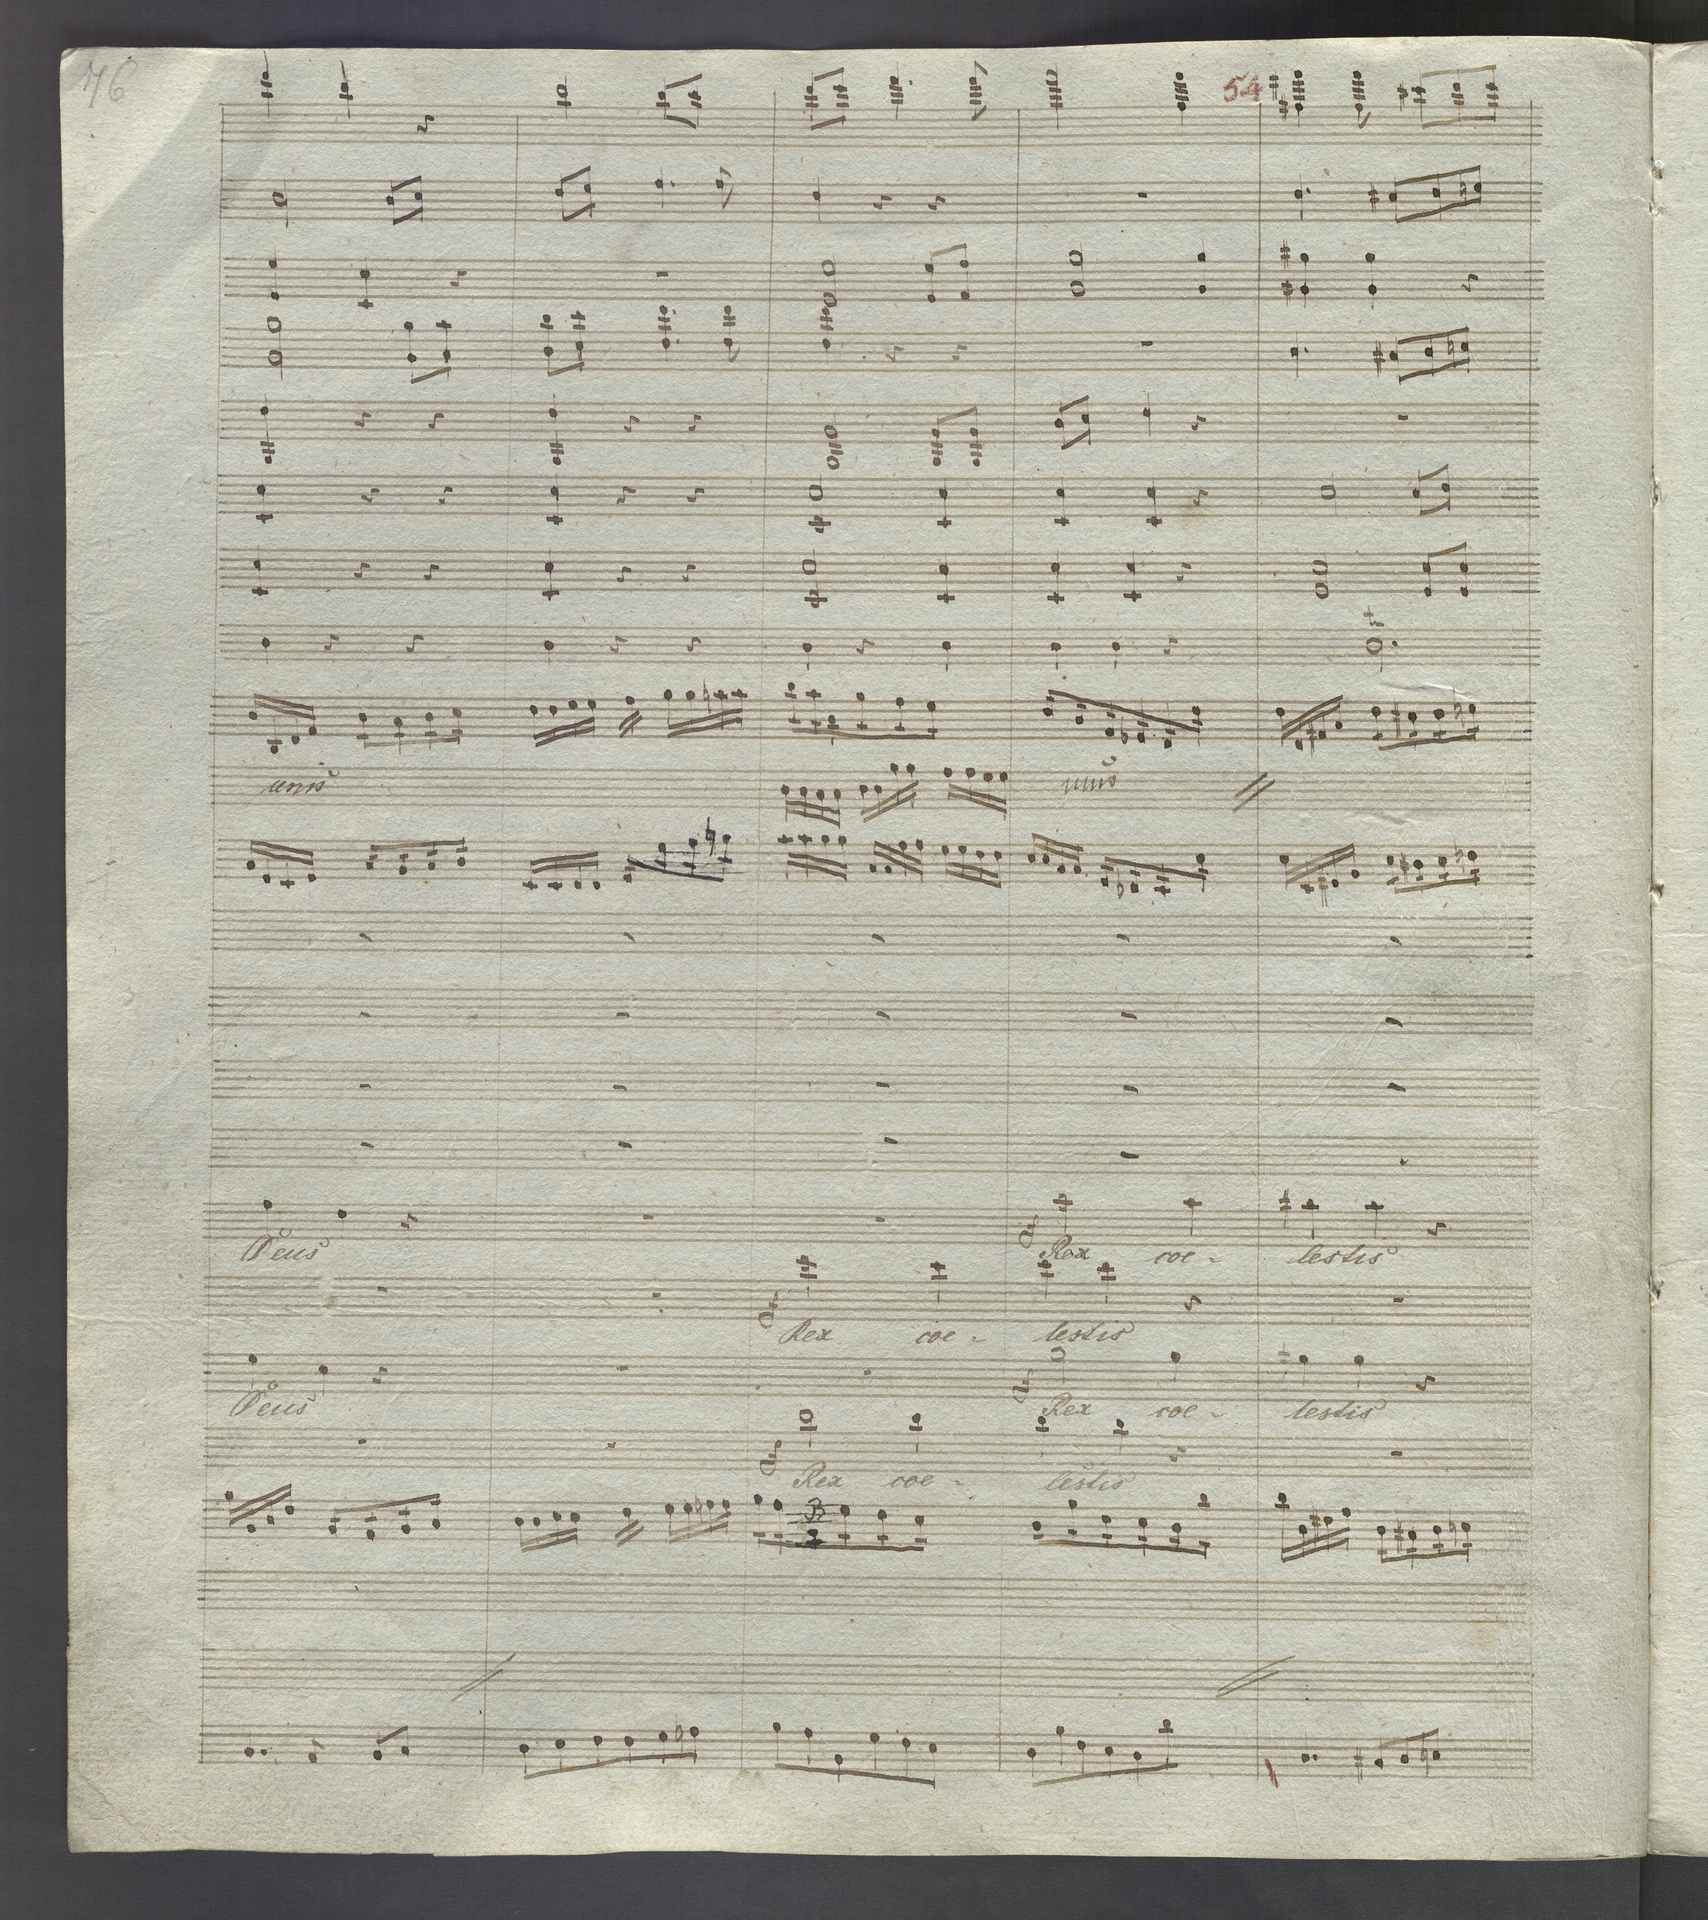 76
54
unis
unis
Deus
Rex coe - lestis
Rex coe - lestis
Deus
Rex coe - lestis
Rex coe - lestis